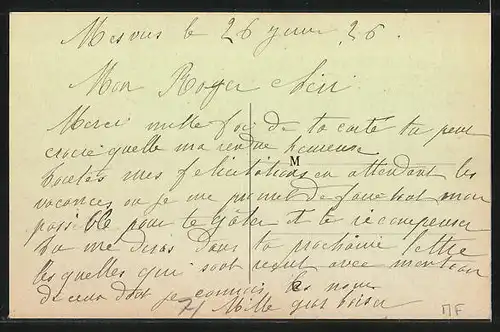 Mesvres le 26 juin 26.
Mon Roger chéri
Merci mille fois de ta carte tu peux
croire quelle ma rendue heureuse
toutes mes félicitations en attendant les
vacances ou je me promet de faire tout mon
M
possible pour te gâter et te récompenser
tu me diras dans ta prochaine lettre
les quelles qui sont reçut avec mention
de ceux dont je connais les noms
Mille gros baiser
MF